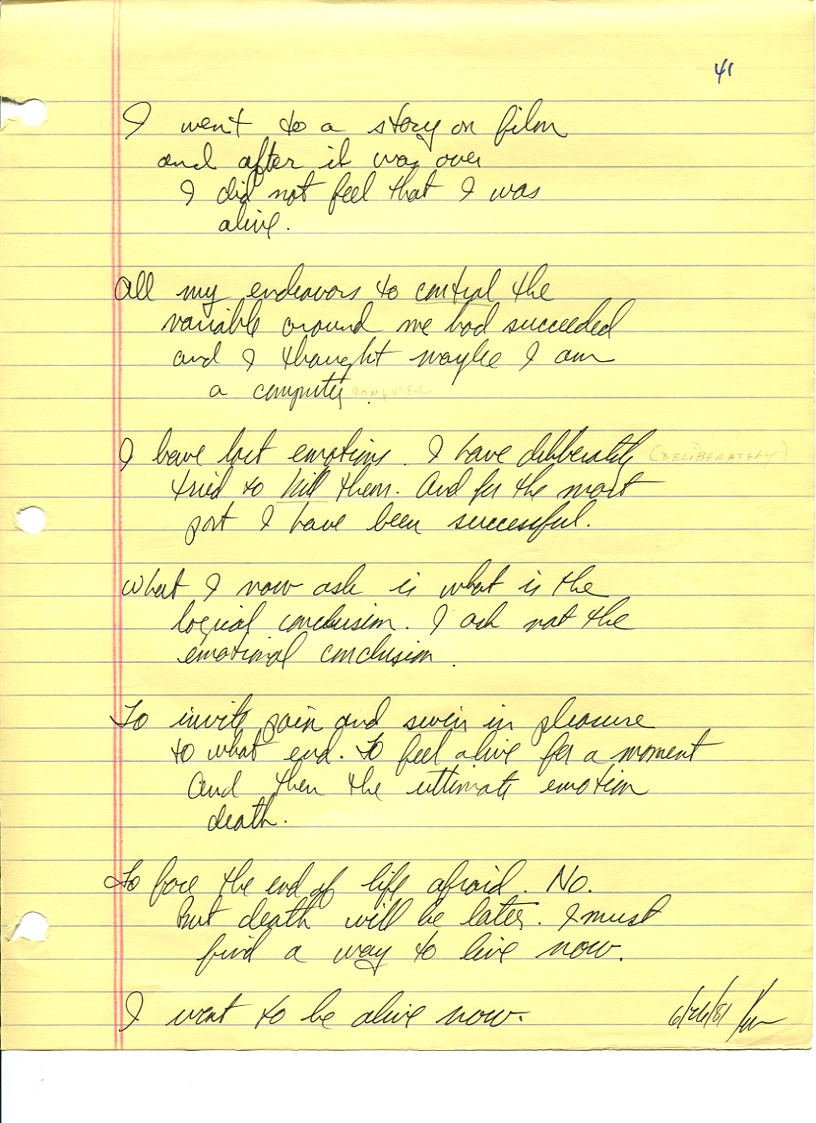 41
I went to a story on film
and after it was over
I did not feel that I was
alive.
All my endeavors to control the
variable around me had succeeded
and I thought maybe I am
a computer. COMPUTER
I have lost emotions. I have deliberately (DELIBERATELY)
tried to kill them. And for the most
part I have been successful.
What I now ask is what is the
logical conclusion. I ask not the
emotional conclusion.
To invite pain and swim in pleasure
to what end. To feel alive for a moment
and then the ultimate emotion
death.
To face the end of life afraid. No.
But death will be later. I must
find a way to live now.
I want to be alive now.
6/26/81